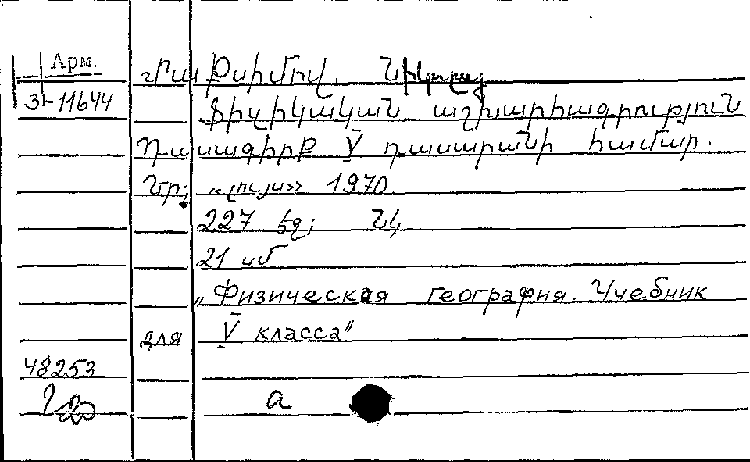 Арм.
Մաքսիմով, Նիկոլայ
Э1-11644
Ֆիզիկական աշխարհագրություն
Դասագիրք V դասարանի համար.
Երլ «Լույս» 1970.
227 էջ; նկ
21 սմ
„Физическая география. Учебник
для V класса"
48253
а